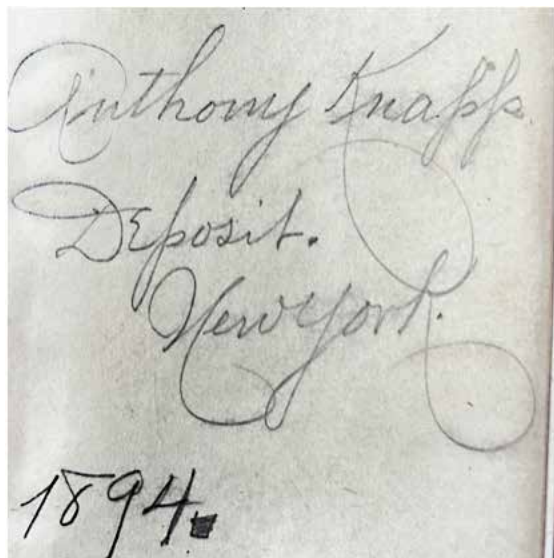 Anthony Knapp.
Deposit.
New York.
1894.